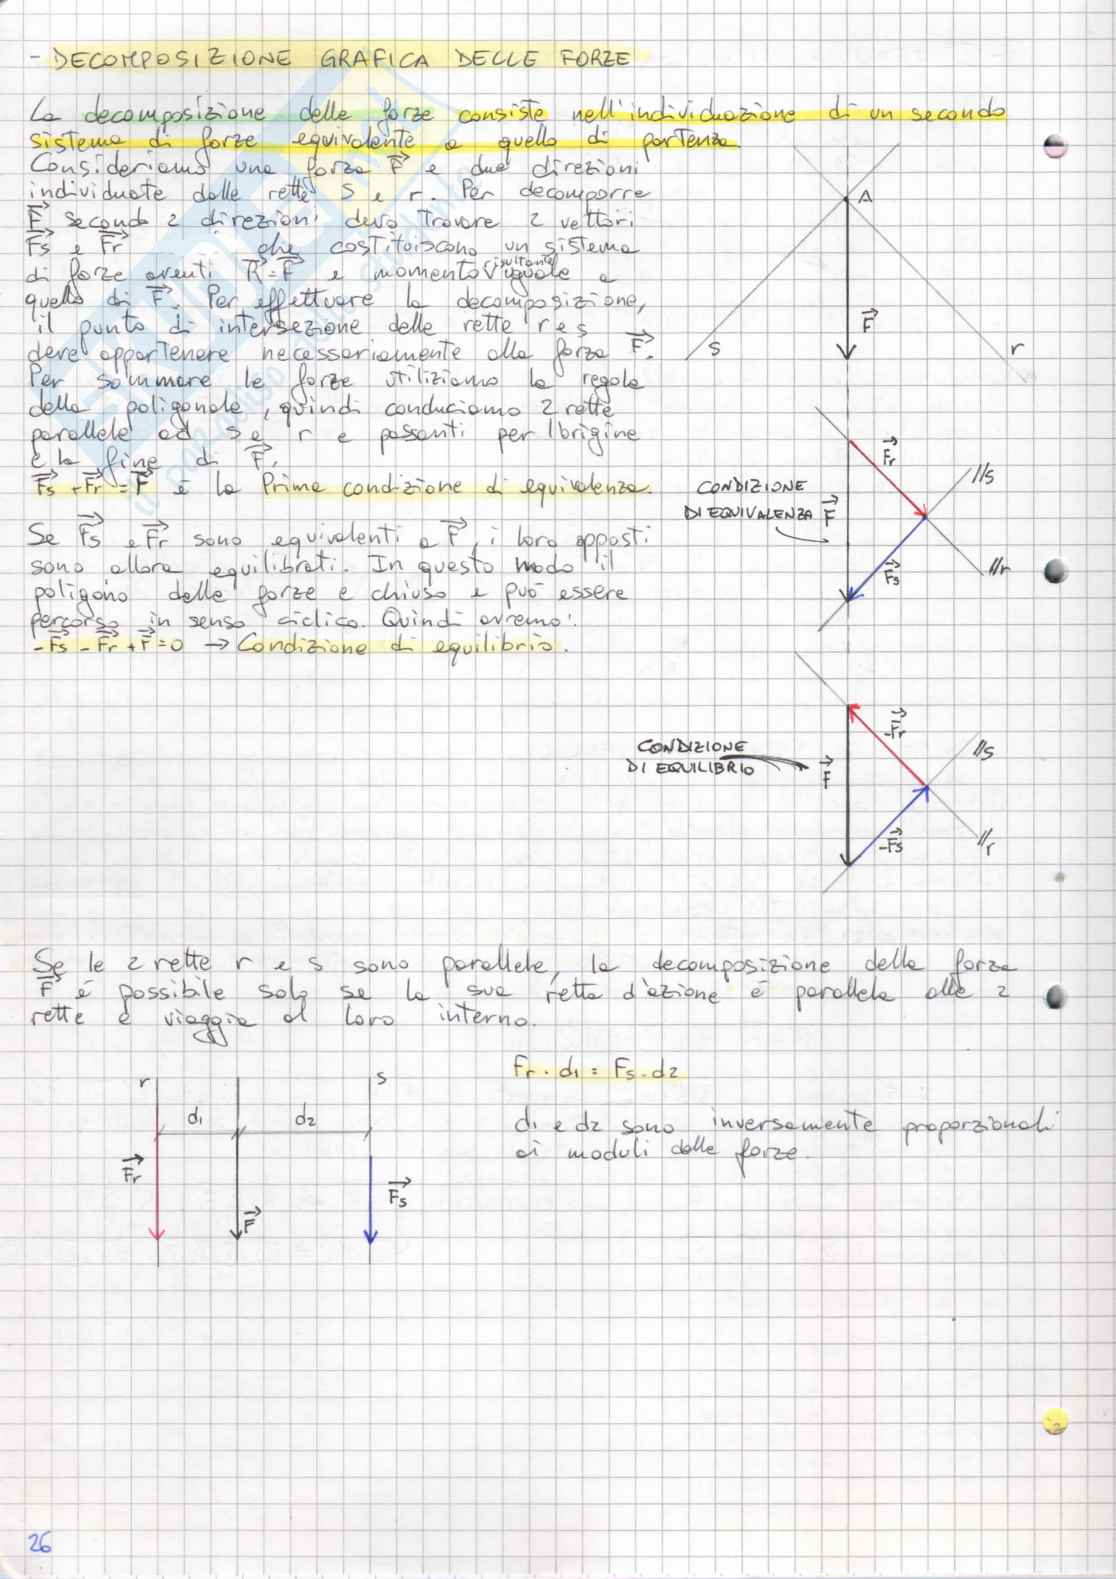 - DECOMPOSIZIONE GRAFICA DELLE FORZE
La decomposizione delle forze consiste nell'individuazione di un secondo
sistema di forze equivalente a quello di partenza.
Consideriamo una forza F e due direzioni
individuate dalle rette s e r. Per decomporre
F secondo 2 direzioni devo trovare 2 vettori
Fs e Fr che costituiscono un sistema
di forze aventi R=F e momento risultante uguale a
quello di F. Per effettuare la decomposizione,
il punto di intersezione delle rette r e s
deve appartenere necessariamente alla forza F.
Per sommare le forze utiliziamo la regola
della poligonale, quindi conduciamo 2 rette
parallele ad s e r e passanti per l'origine
e la fine di F.
Fs + Fr = F è la Prima condizione di equivalenza.
Se Fs e Fr sono equivalenti a F, i loro opposti
sono allora equilibrati. In questo modo il
poligono delle forze e chiuso e può essere
percorso in senso ciclico. Quindi avremo:
-Fs - Fr + F = 0 → Condizione di equilibrio.
A
F
s
r
Fr
//s
CONDIZIONE
DI EQUIVALENZA F
Fs
//r
-Fr
CONDIZIONE
DI EQUILIBRIO
F
//s
-Fs
//r
Se le 2 rette r e s sono parallele, la decomposizione della forza
F è possibile solo se la sua retta d'azione è parallela alle 2
rette e viaggia al loro interno.
r
s
d1
d2
Fr
F
Fs
Fr · d1 = Fs · d2
d1 e d2 sono inversamente proporzionali
ai moduli delle forze.
26